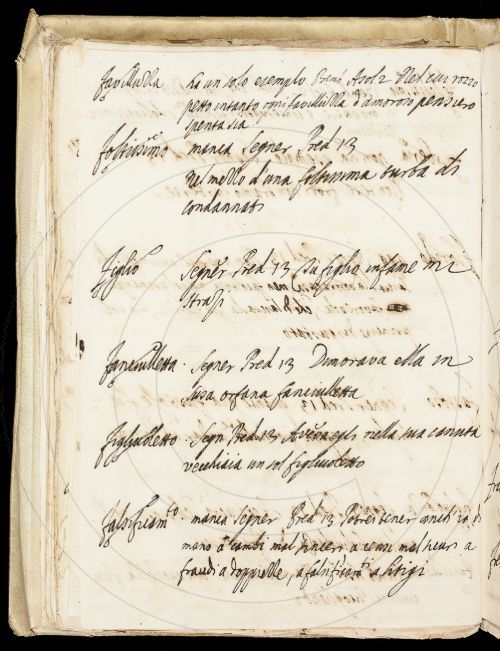 favilluzza ha un solo esemplo Bemb Asol 2 Nel cui rozzo
petto intanto ogni favilluzza d'amoroso pensiero
spenta sia
foltissimo manca Segner Pred 13
Nel mezzo d'una foltissima turba di
condannati
figlio Segner Pred 13 Su figlio infame in
strazi
fanciulletta Segner Pred 13 Dimorava ella in
casa orfana fanciulletta
figliuoletto Segn Pred 13 nella sua canuta
vecchiaia un sol figliuoletto
falsificamto manca Segner Pred 13 Potrei tener
mano a cambi mal sinceri a censi mal sicuri a
fraudi a doppiezze, a falsificamti a litigi